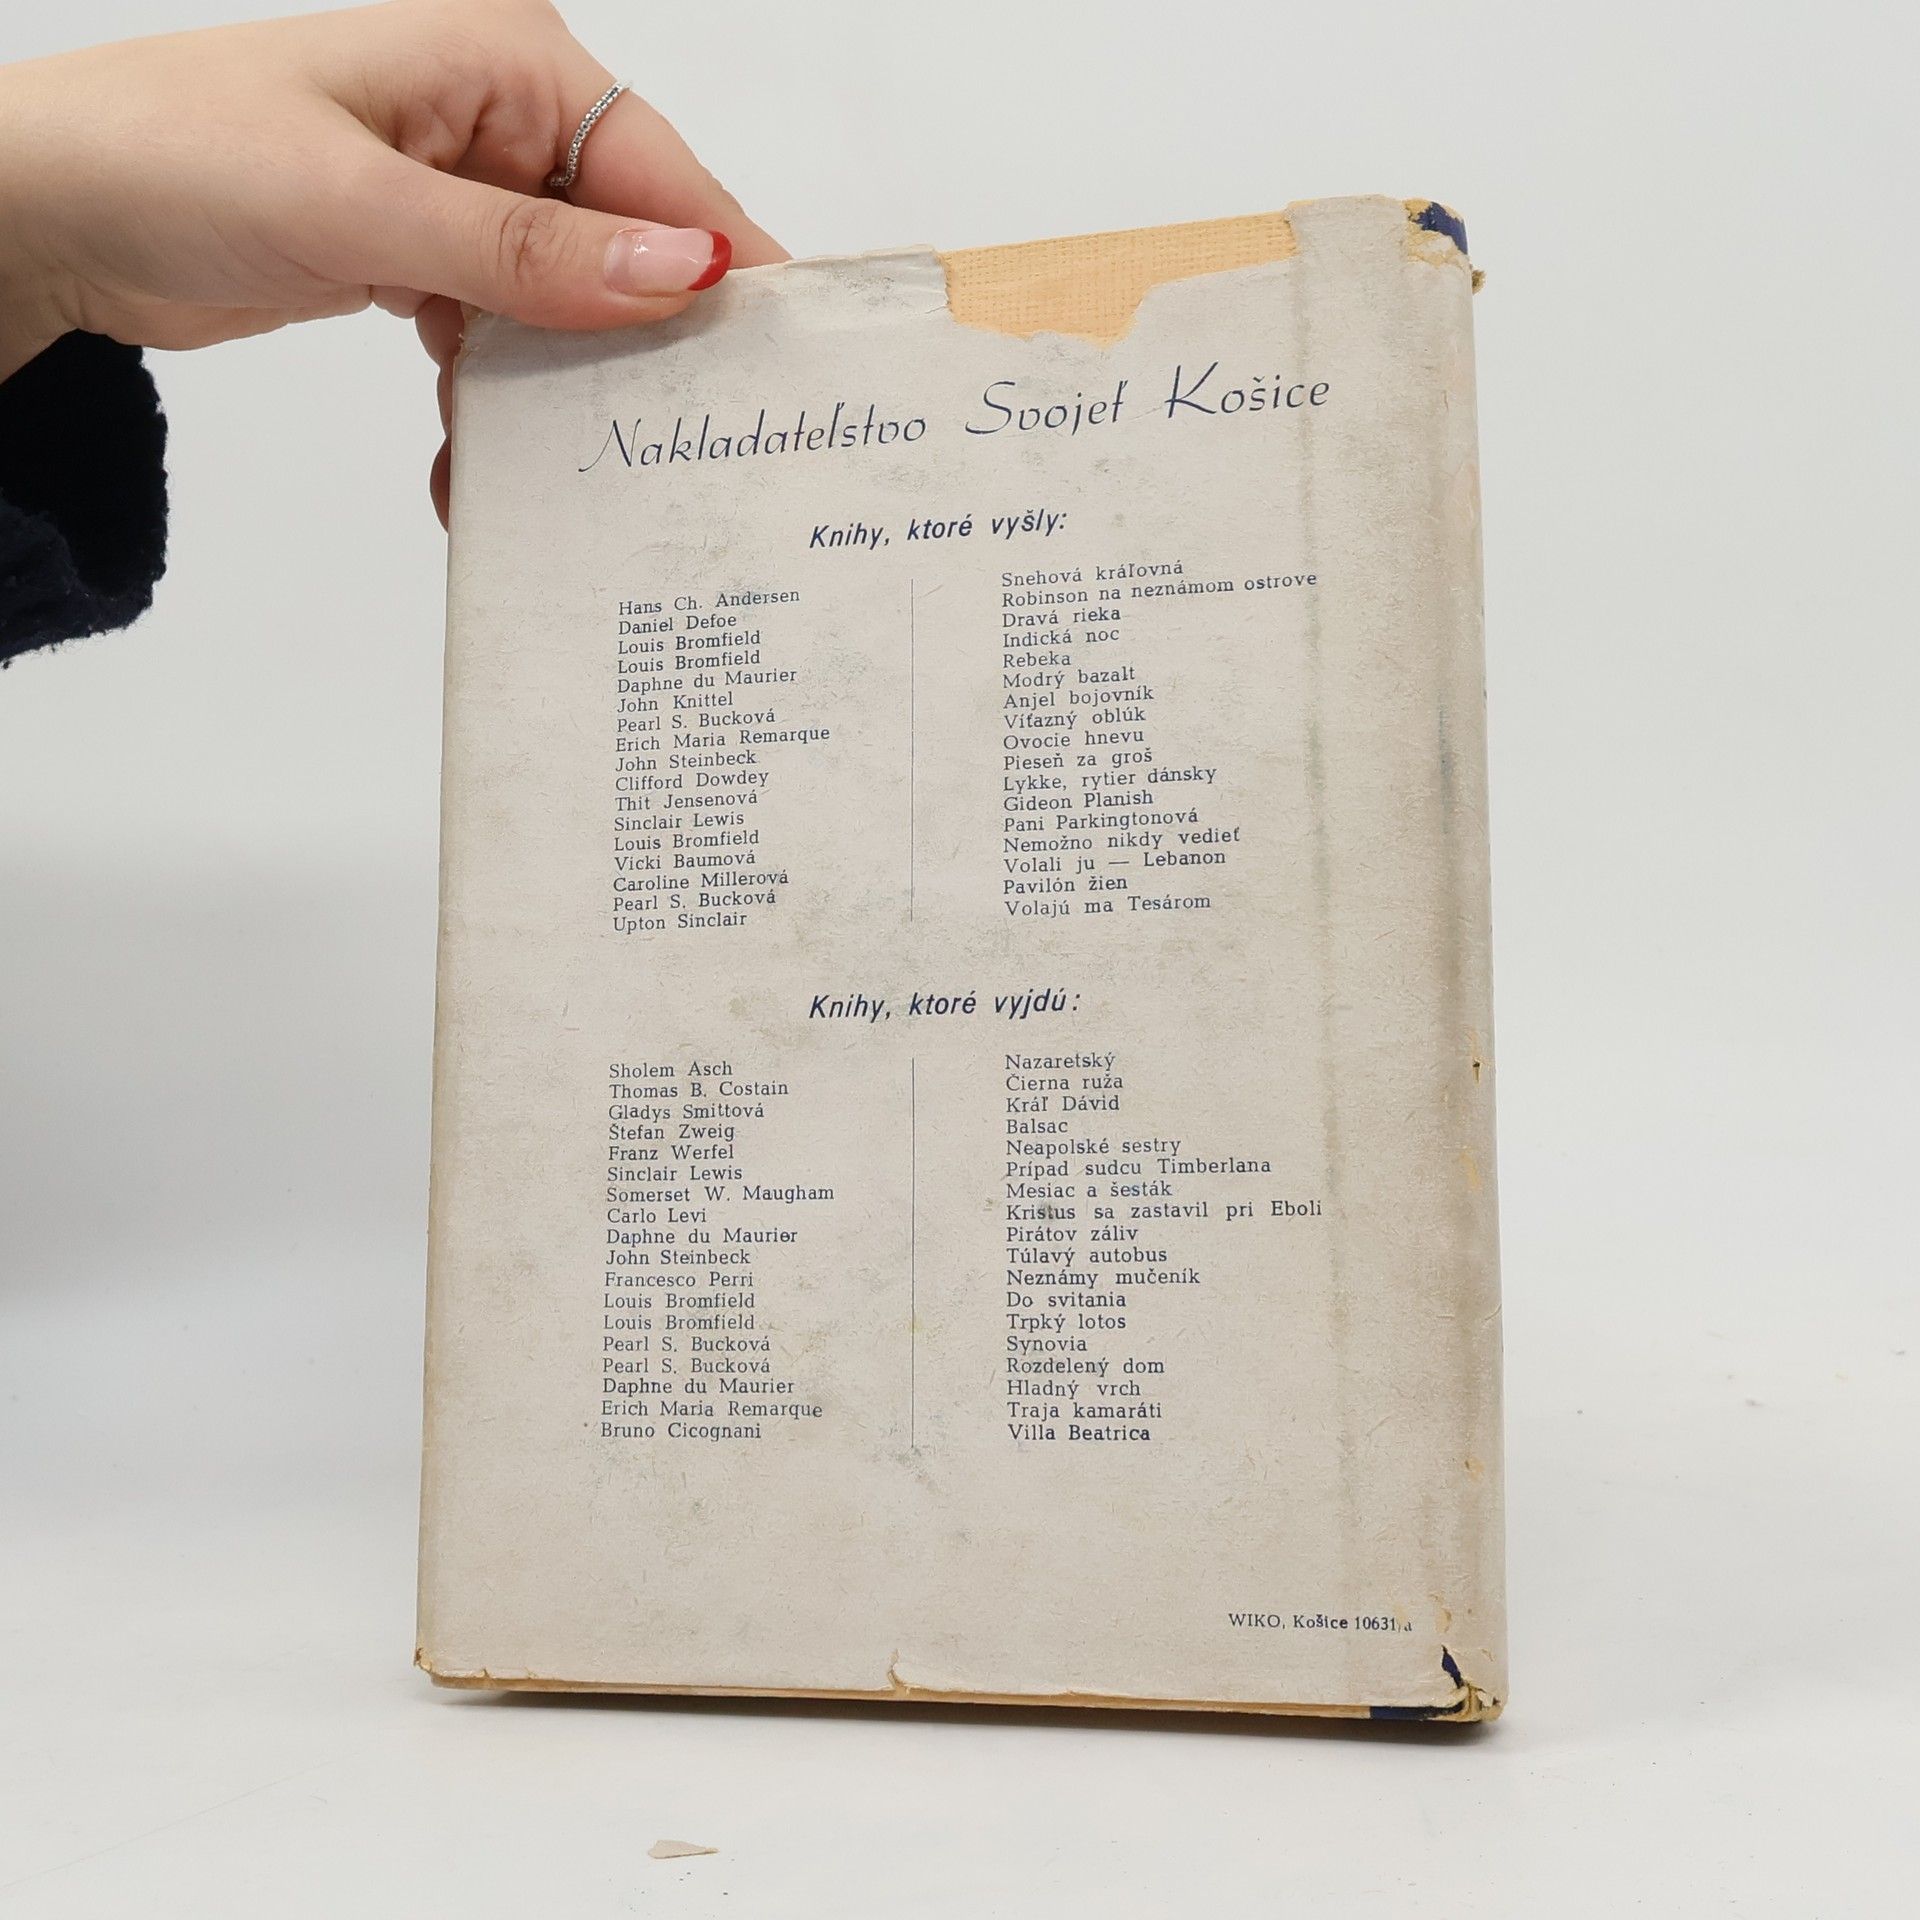 Nakladateľstvo Svojeť Košice
Knihy, ktoré vyšly:
Hans Ch. Andersen Snehová kráľovná
Daniel Defoe Robinson na neznámom ostrove
Louis Bromfield Dravá rieka
Louis Bromfield Indická noc
Daphne du Maurier Rebeka
John Knittel Modrý bazalt
Pearl S. Bucková Anjel bojovník
Erich Maria Remarque Víťazný oblúk
John Steinbeck Ovocie hnevu
Clifford Dowdey Pieseň za groš
Thit Jensenová Lykke, rytier dánsky
Sinclair Lewis Gideon Planish
Louis Bromfield Pani Parkingtonová
Vicki Baumová Nemožno nikdy vedieť
Caroline Millerová Volali ju — Lebanon
Pearl S. Bucková Pavilón žien
Upton Sinclair Volajú ma Tesárom
Knihy, ktoré vyjdú:
Sholem Asch Nazaretský
Thomas B. Costain Čierna ruža
Gladys Smittová Kráľ Dávid
Štefan Zweig Balsac
Franz Werfel Neapolské sestry
Sinclair Lewis Prípad sudcu Timberlana
Somerset W. Maugham Mesiac a šesták
Carlo Levi Kristus sa zastavil pri Eboli
Daphne du Maurier Pirátov záliv
John Steinbeck Túlavý autobus
Francesco Perri Neznámy mučeník
Louis Bromfield Do svitania
Louis Bromfield Trpký lotos
Pearl S. Bucková Synovia
Pearl S. Bucková Rozdelený dom
Daphne du Maurier Hladný vrch
Erich Maria Remarque Traja kamaráti
Bruno Cicognani Villa Beatrica
WIKO, Košice 10631/a